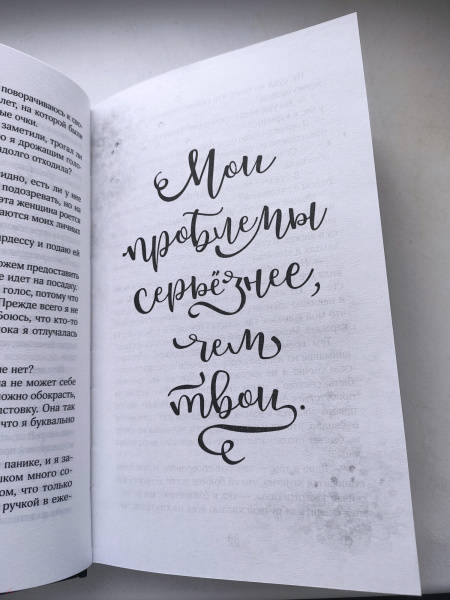 поворачиваюсь к
лет, на которой были
ые очки.
заметили, трогал ли
о я дрожащим голо-
адолго отходила?
видно, есть ли у нее
подозревать, но на
эта женщина роется
аются моих личных
рдессу и подаю ей
ожем предоставить
е идет на посадку.
голос, потому что
Прежде всего я не
Боюсь, что кто-то
пока я отлучалась
не нет?
на не может себе
ожно обокрасть,
лстовку. Она так
что я буквально
панике, и я за-
шком много со-
ом, что только
ручкой в еже-
Мои
проблемы
серьёзнее,
чем
твои.